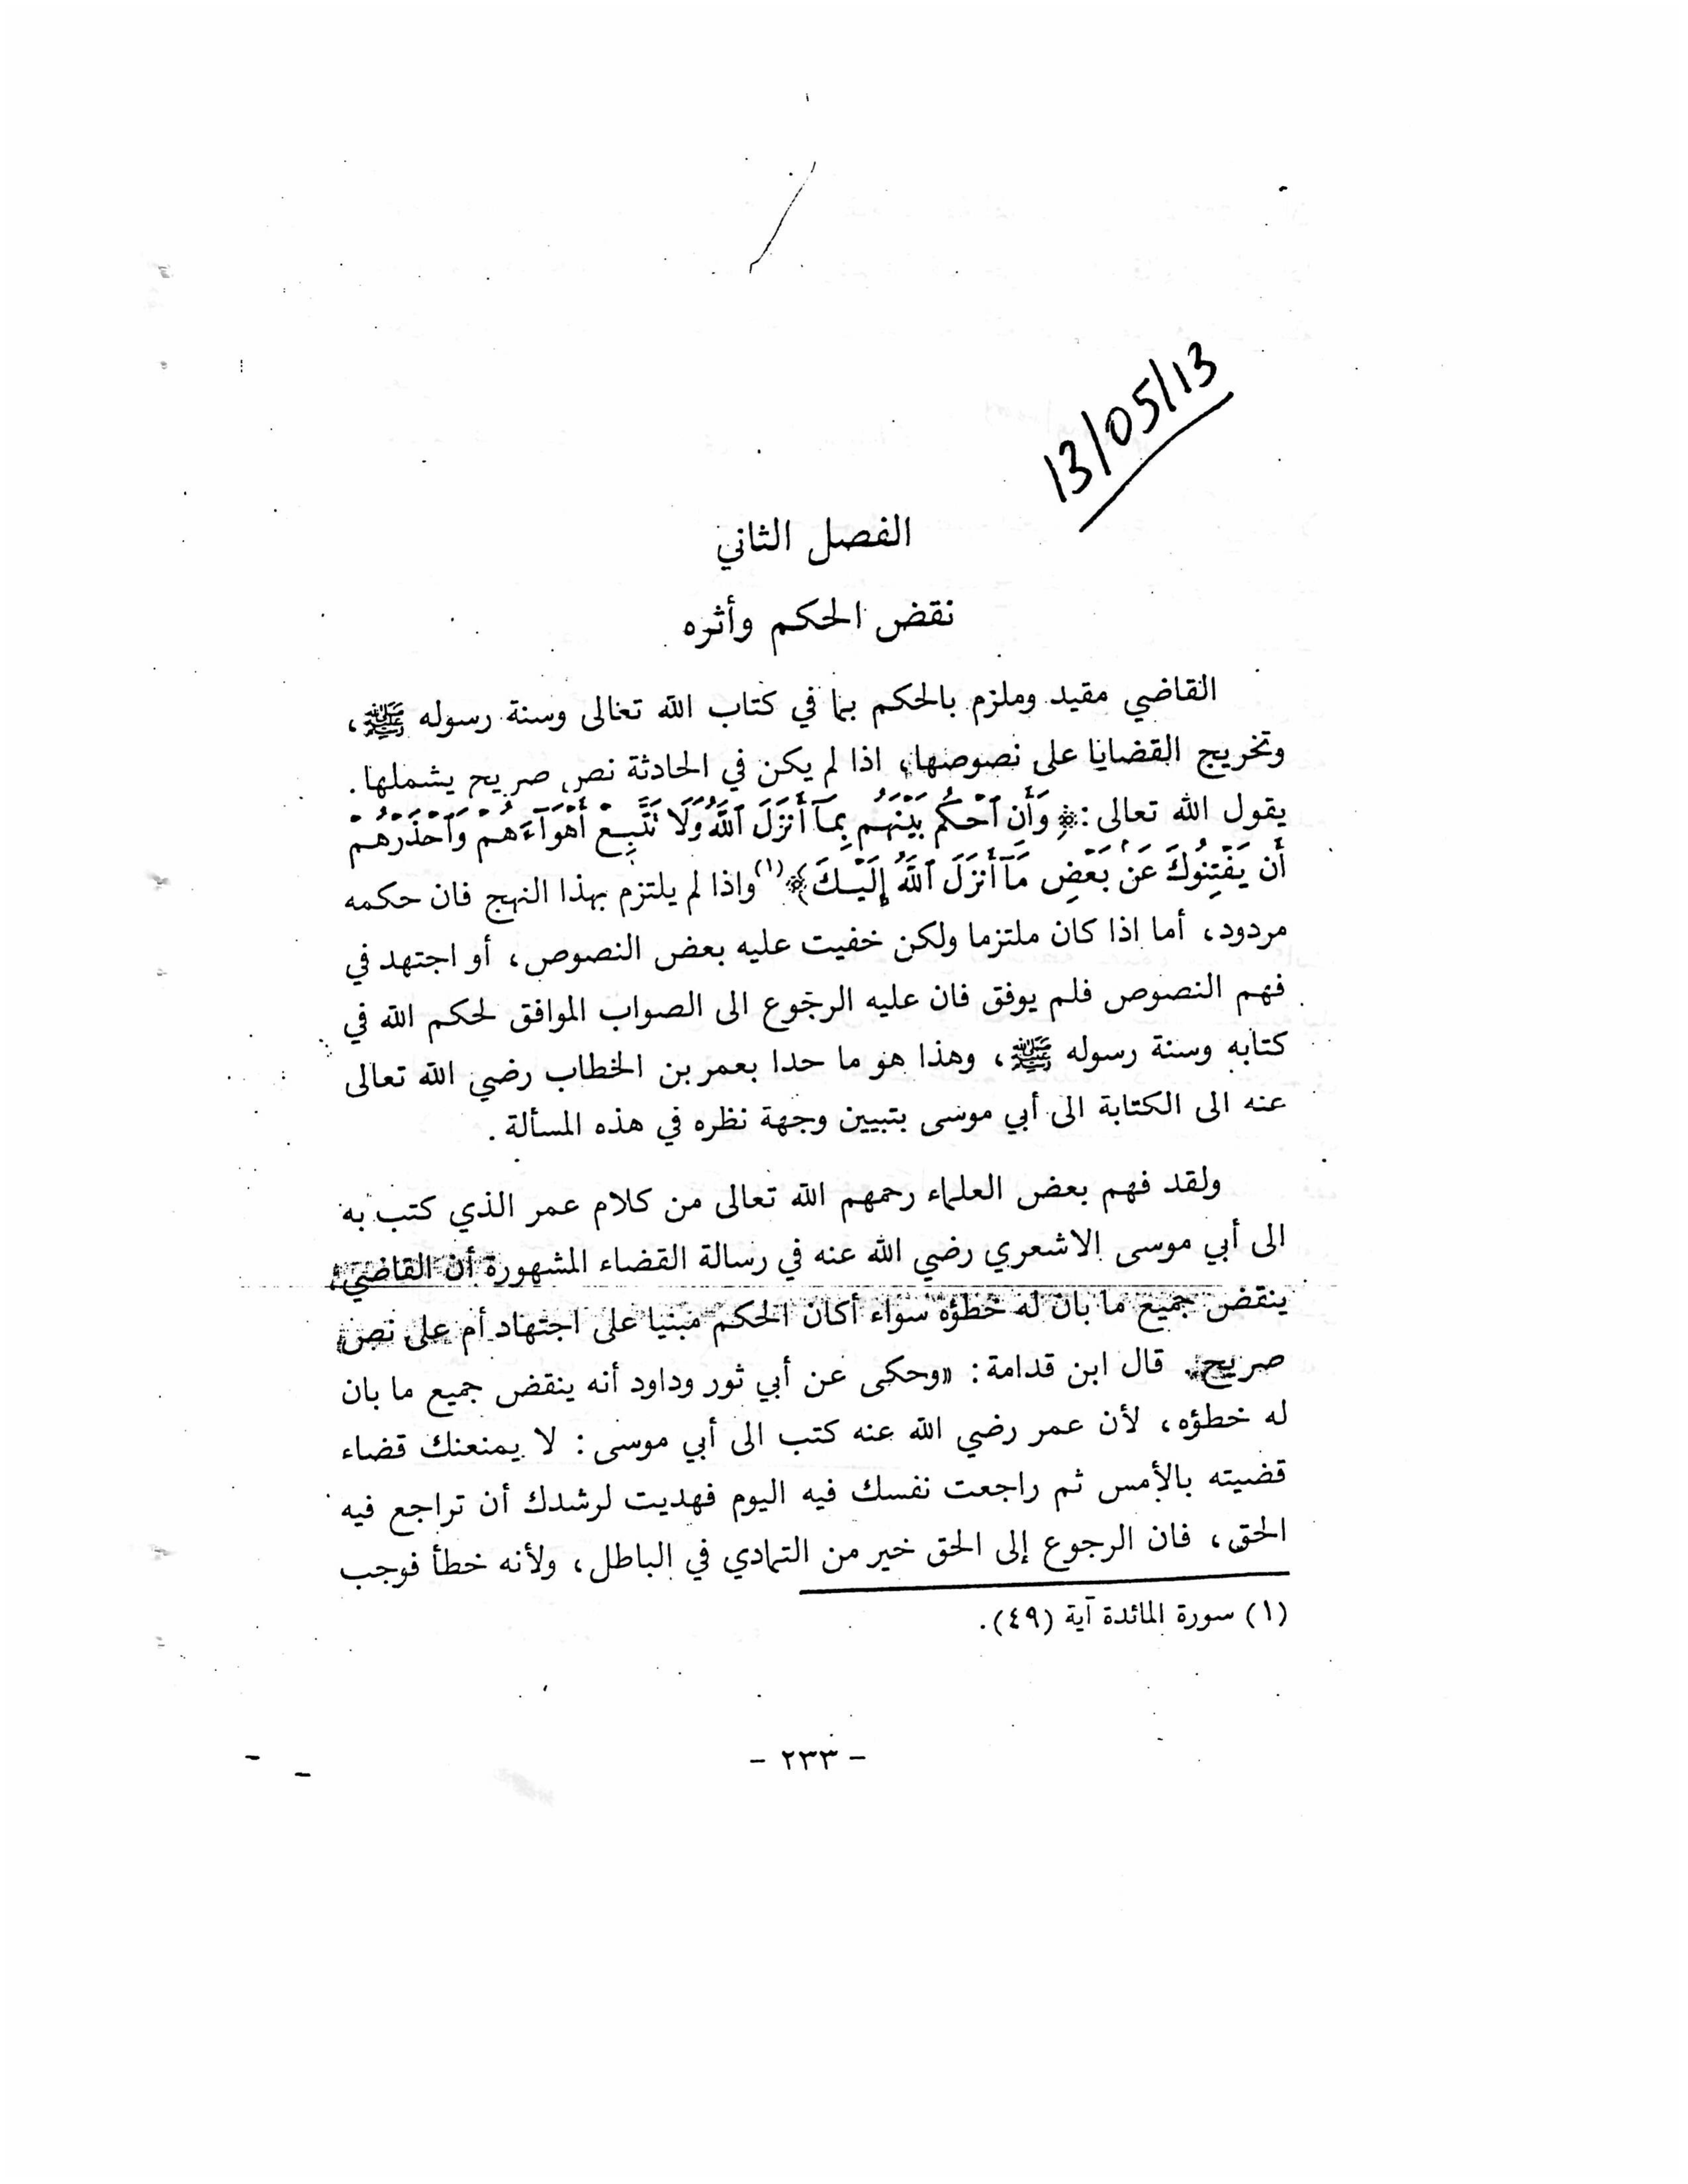 13/05/13
الفصل الثاني
نقض الحكم وأثره
القاضي مقيد وملزم بالحكم بما في كتاب الله تعالى وسنة رسوله ﷺ،
وتخريج القضايا على نصوصها، اذا لم يكن في الحادثة نص صريح يشملها.
يقول الله تعالى: ﴿وَأَنِ ٱحْكُم بَيْنَهُم بِمَآ أَنزَلَ ٱللَّهُ وَلَا تَتَّبِعْ أَهْوَآءَهُمْ وَٱحْذَرْهُمْ
أَن يَفْتِنُوكَ عَنۢ بَعْضِ مَآ أَنزَلَ ٱللَّهُ إِلَيْكَ﴾(١) واذا لم يلتزم بهذا النهج فان حكمه
مردود، أما اذا كان ملتزما ولكن خفيت عليه بعض النصوص، أو اجتهد في
فهم النصوص فلم يوفق فان عليه الرجوع الى الصواب الموافق لحكم الله في
كتابه وسنة رسوله ﷺ، وهذا هو ما حدا بعمر بن الخطاب رضي الله تعالى
عنه الى الكتابة الى أبي موسى بتبيين وجهة نظره في هذه المسألة.
ولقد فهم بعض العلماء رحمهم الله تعالى من كلام عمر الذي كتب به
الى أبي موسى الاشعري رضي الله عنه في رسالة القضاء المشهورة أن القاضي
ينقض جميع ما بان له خطؤه سواء أكان الحكم مبنيا على اجتهاد أم على نص
صريح. قال ابن قدامة: «وحكى عن أبي ثور وداود أنه ينقض جميع ما بان
له خطؤه، لأن عمر رضي الله عنه كتب الى أبي موسى: لا يمنعنك قضاء
قضيته بالأمس ثم راجعت نفسك فيه اليوم فهديت لرشدك أن تراجع فيه
الحق، فان الرجوع إلى الحق خير من التمادي في الباطل، ولأنه خطأ فوجب
(١) سورة المائدة آية (٤٩).
- ٢٣٣ -